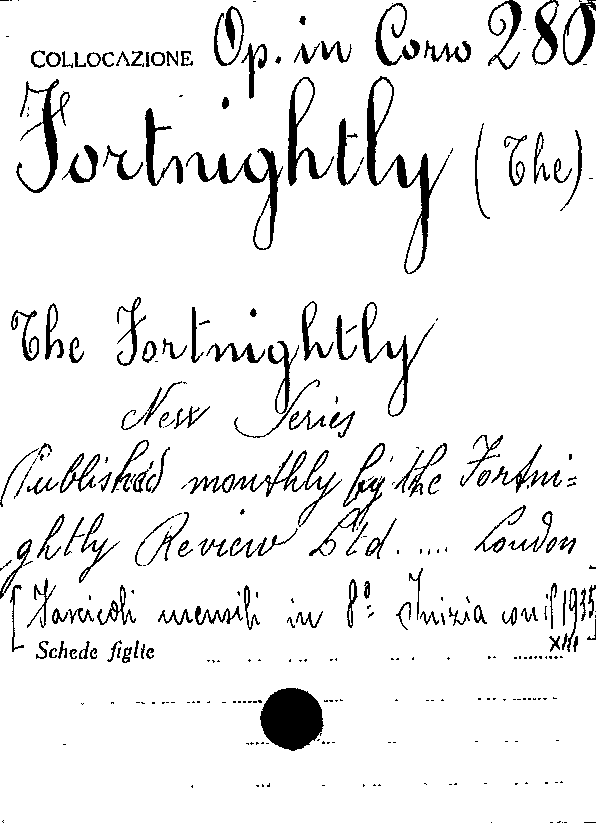 COLLOCAZIONE Op. in Corso 280
Fortnightly (The)
The Fortnightly
New Series
Published monthly by the Fortni=
ghtly Review Ltd. .... London
[Fascicoli mensili in 8º= Inizia con il 1935]
XIII
Schede figlie